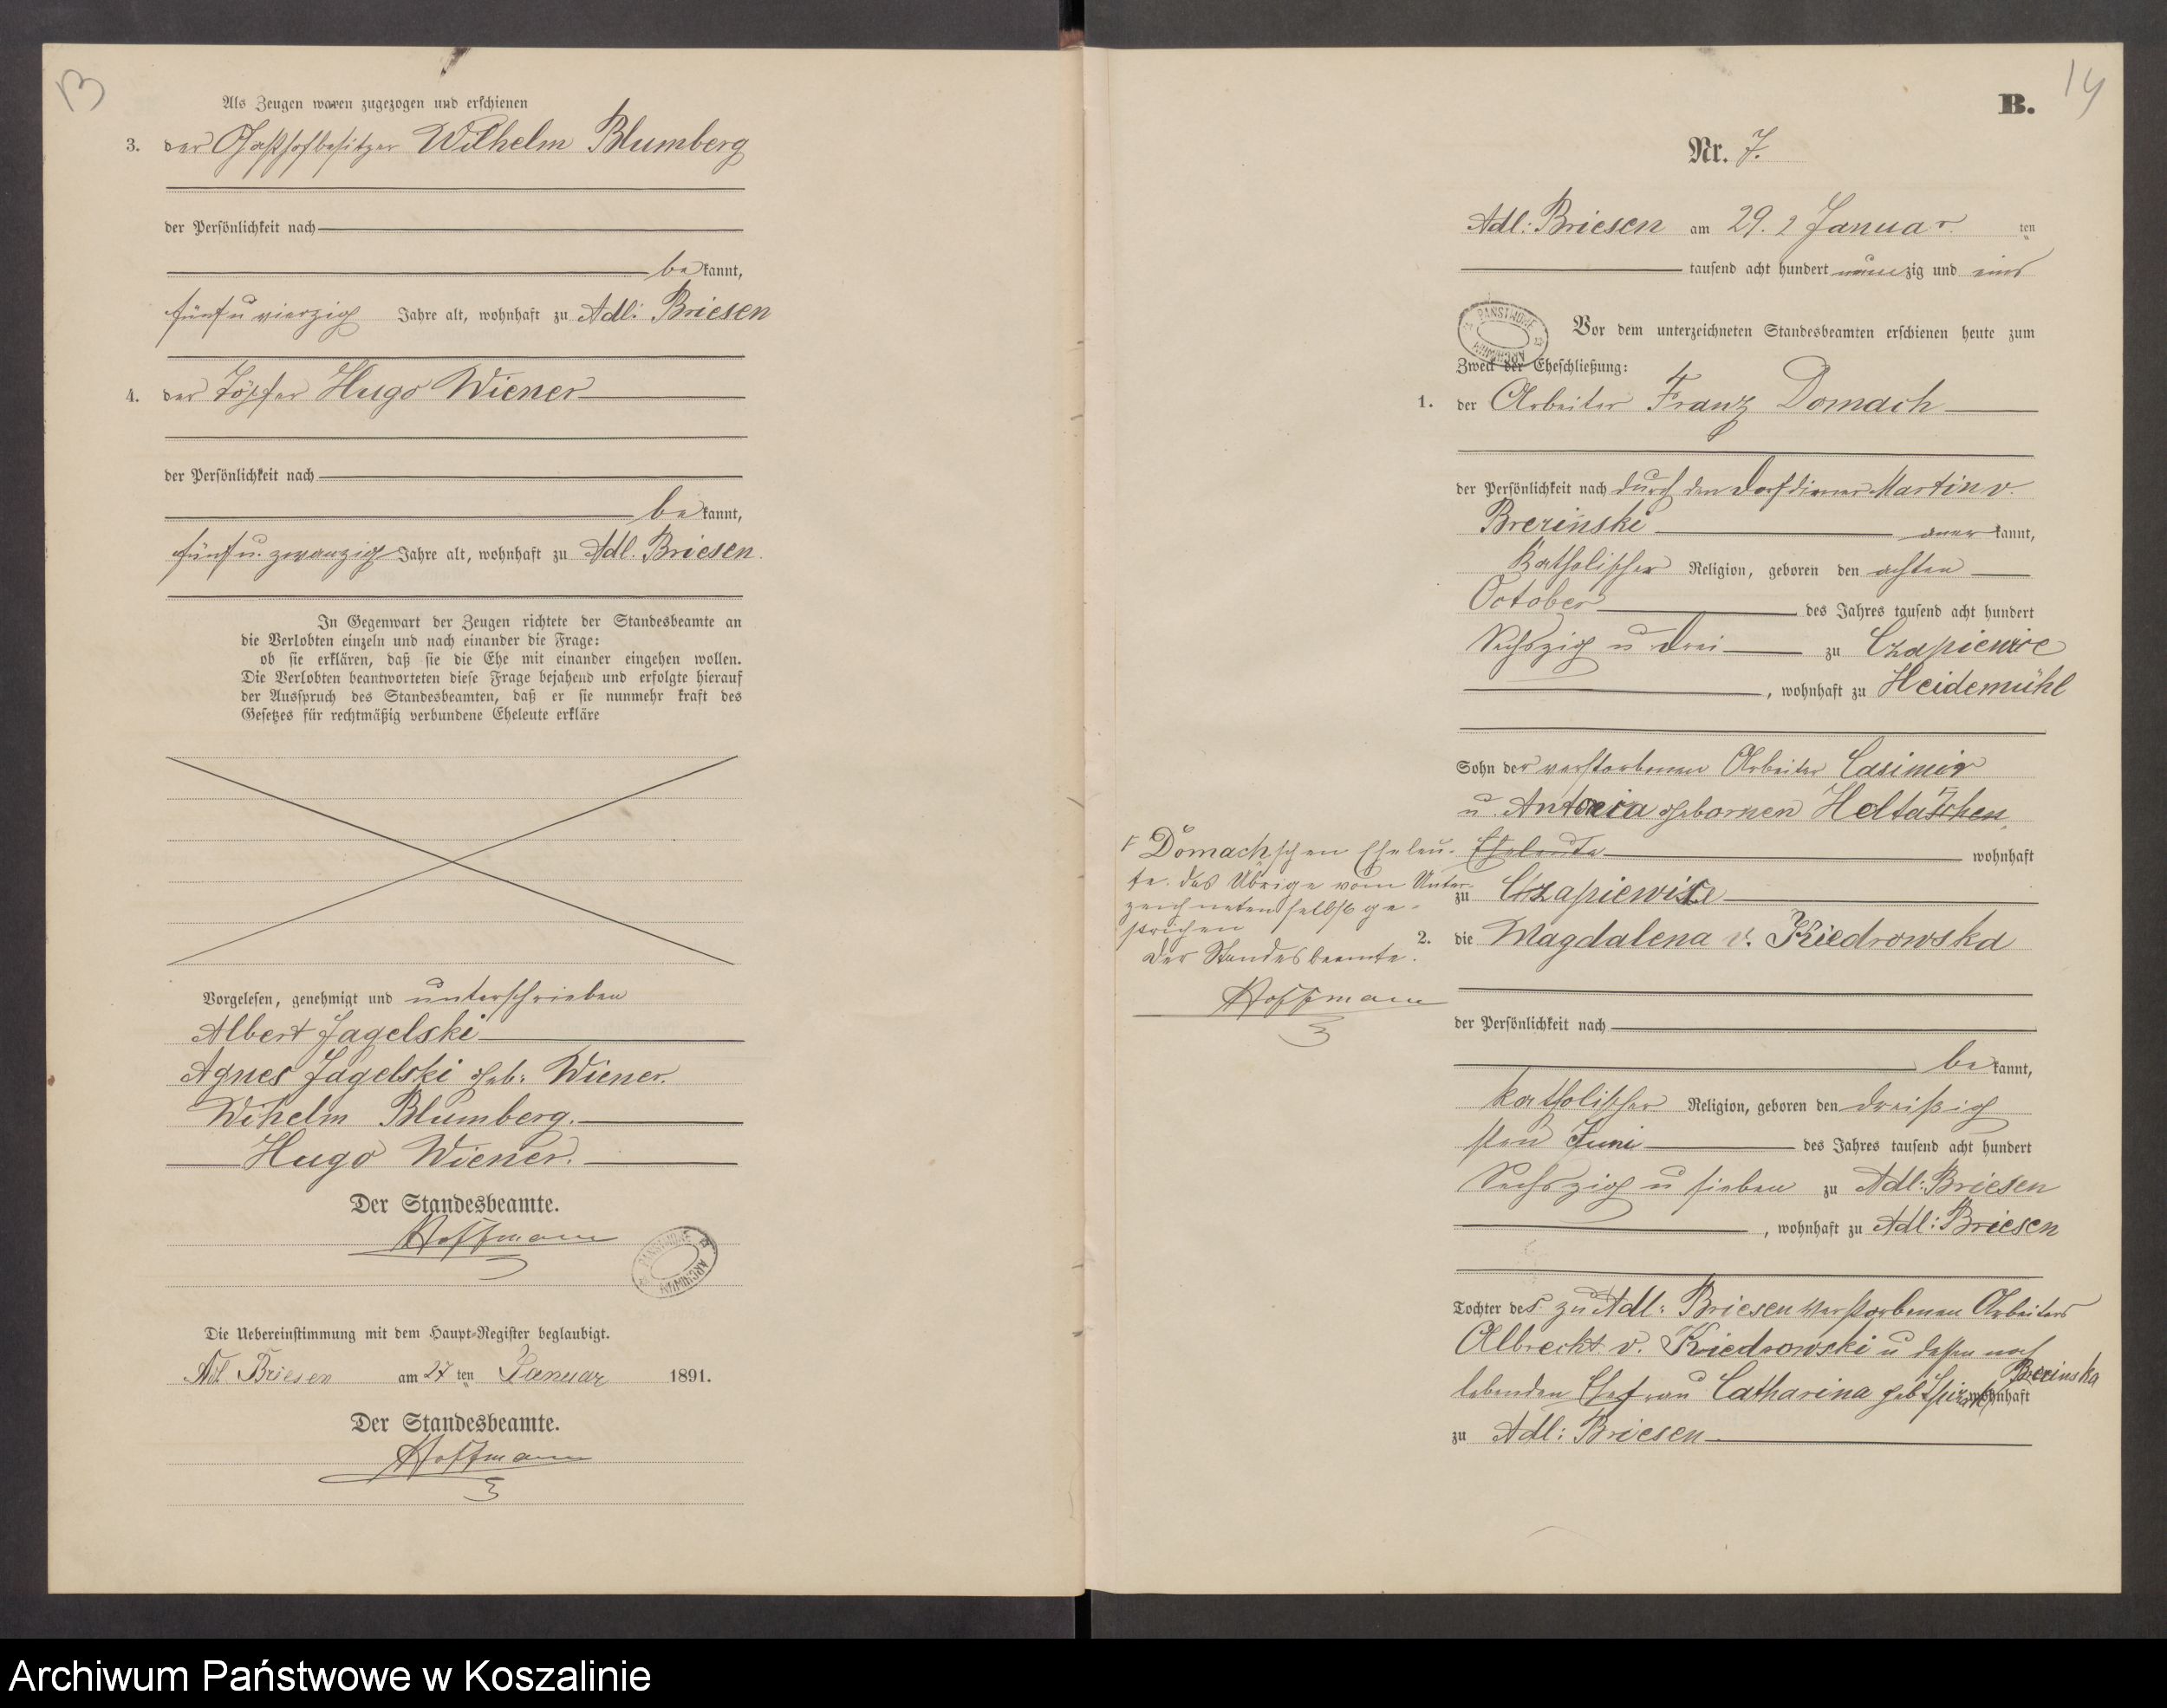 13
Als Zeugen waren zugezogen und erschienen
3. der Gasthofbesitzer Wilhelm Blumberg
der Persönlichkeit nach
bekannt,
fünf u vierzig Jahre alt, wohnhaft zu Adl: Briesen
4. der Töpfer Hugo Wiener
der Persönlichkeit nach
bekannt,
fünf u. zwanzig Jahre alt, wohnhaft zu Adl. Briesen.
In Gegenwart der Zeugen richtete der Standesbeamte an
die Verlobten einzeln und nach einander die Frage:
ob sie erklären, daß sie die Ehe mit einander eingehen wollen.
Die Verlobten beantworteten diese Frage bejahend und erfolgte hierauf
der Ausspruch des Standesbeamten, daß er sie nunmehr kraft des
Gesetzes für rechtmäßig verbundene Eheleute erkläre
Vorgelesen, genehmigt und unterschrieben
Albert Jagelski
Agnes Jagelski geb: Wiener.
Wihelm Blumberg.
Hugo Wiener.
Der Standesbeamte.
Hoffmann
PAŃSTWOWE ARCHIWUM
Die Uebereinstimmung mit dem Haupt-Register beglaubigt.
Adl. Briesen am 27 ten Januar 1891.
Der Standesbeamte.
Hoffmann
14
B.
Nr. 7.
Adl: Briesen am 29. Januar ten
tausend acht hundert neunzig und eins
PAŃSTWOWE ARCHIWUM
Vor dem unterzeichneten Standesbeamten erschienen heute zum
Zweck der Eheschließung:
1. der Arbeiter Franz Domach
der Persönlichkeit nach durch den Dorfdiener Martin v.
Brezinski anerkannt,
Katholischer Religion, geboren den achten
October des Jahres tausend acht hundert
Sechszig u Drei zu Czapiewice
, wohnhaft zu Heidemühl
Sohn der verstorbenen Arbeiter Casimir
u. Antonia gebornen
Eheleute wohnhaft
zu Czapiewice
Domachschen Eheleu-
te. das Übrige vom Unter-
zeichneten selbst ge-
strichen
Der Standesbeamte.
Hoffmann
2. die Magdalena v. Kiedrowska
der Persönlichkeit nach
bekannt,
katholischer Religion, geboren den dreißig
sten Juni des Jahres tausend acht hundert
Sechszig u sieben zu Adl: Briesen
, wohnhaft zu Adl: Briesen
Tochter des zu Adl: Briesen verstorbenen Arbeiters
Albrecht v. Kiedrowski u dessen noch
Brezinska
lebenden Ehefrau Catharina geb wohnhaft
zu Adl: Briesen
Archiwum Państwowe w Koszalinie